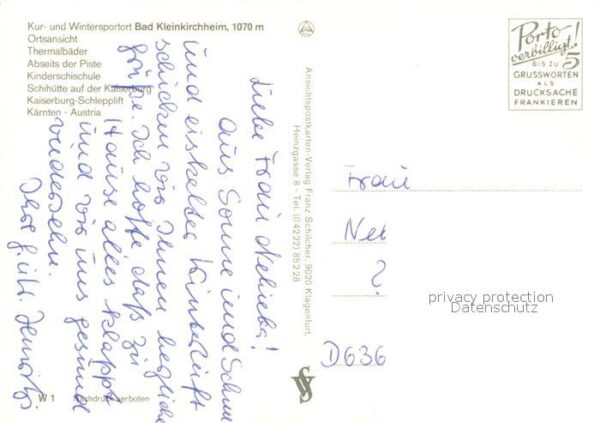 Kur- und Wintersportort Bad Kleinkirchheim, 1070 m
Ortsansicht
Thermalbäder
Abseits der Piste
Kinderschischule
Schihütte auf der Kaiserburg
Kaiserburg-Schlepplift
Kärnten · Austria
Liebe Frau
aus Sonne und Schnee
und eiskalter Winterluft
schicken wir Ihnen herzliche
Grüße. Ich hoffe daß zu
Hause alles klappt
und wir uns gesund
wiedersehn.
Ihre
W 1 Nachdruck verboten
Ansichtspostkarten-Verlag Franz Schilcher, 9020 Klagenfurt,
Heinzgasse 8 - Tel. (04222) 85228
Porto
verbilligt!
BIS ZU 5
GRUSSWORTEN
ALS
DRUCKSACHE
FRANKIEREN
Frau
?
D636
privacy protection
Datenschutz